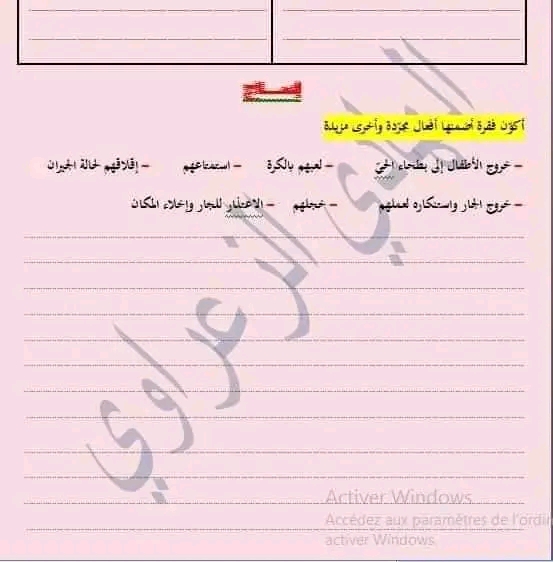 إنتاج
أكوّن فقرة أضمنها أفعال مجرّدة وأخرى مزيدة
– خروج الأطفال إلى بطحاء الحيّ – لعبهم بالكرة – استمتاعهم – إقلاقهم لحالة الجيران
– خروج الجار واستنكاره لعملهم – خجلهم – الاعتذار للجار وإخلاء المكان
الهادي الزعراوي
Activer Windows
Accédez aux paramètres de l'ordi
activer Windows.